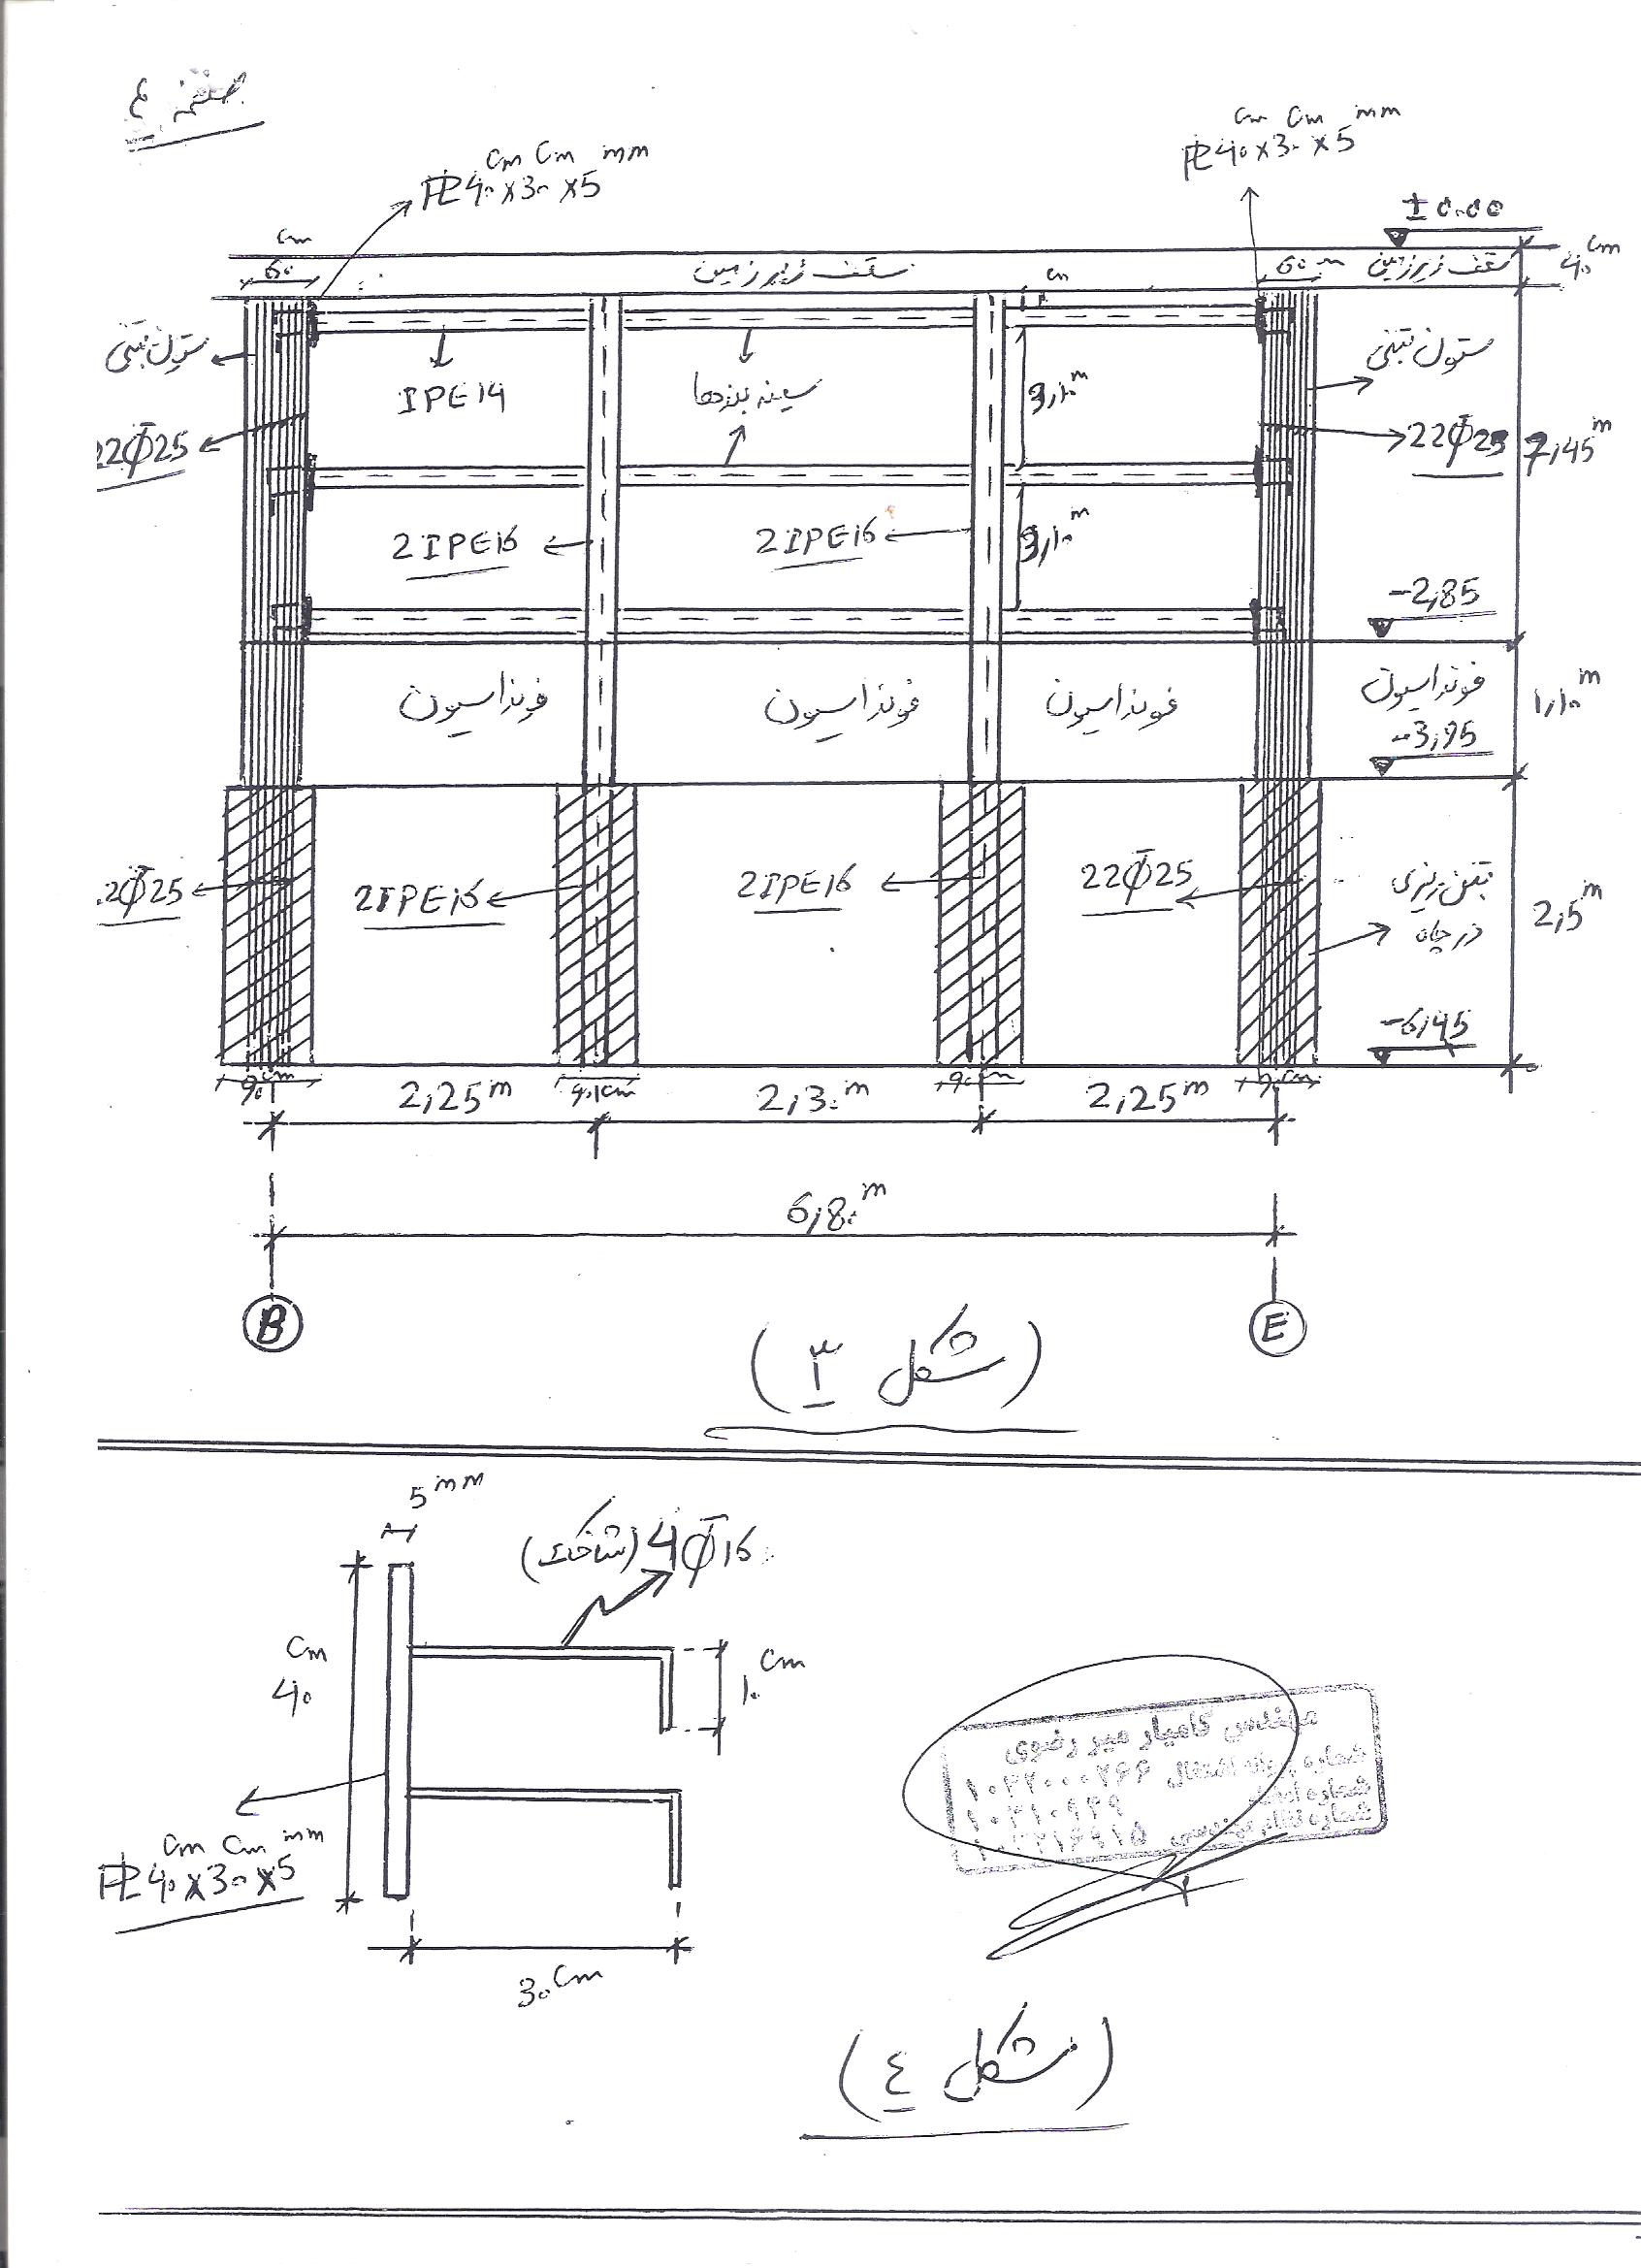 صفحه ٤
cm cm mm
PL 40×30×5
cm cm mm
PL 40×30×5
±0.00
cm
60
سقف زیرزمین
cm
60
سقف زیرزمین
40 cm
ستون بتنی
IPE14
سینه بندها
ستون بتنی
22Φ25
22Φ25
7,45 m
2IPE16
2IPE16
-2,85
فونداسیون
فونداسیون
فونداسیون
فونداسیون
1,10 m
-3,95
22Φ25
2IPE16
2IPE16
22Φ25
بتن ریزی
در چاه
2,5 m
-6,45
90 cm
2,25 m
90 cm
2,30 m
90 cm
2,25 m
90 cm
6,80 m
B
E
(شکل ۳)
5 mm
4Φ16 (شاخک)
cm
40
10 cm
cm cm mm
PL 40×30×5
30 cm
مهندس کامیار میر رضوی
شماره پروانه اشتغال
شماره نظام مهندسی
(شکل ٤)